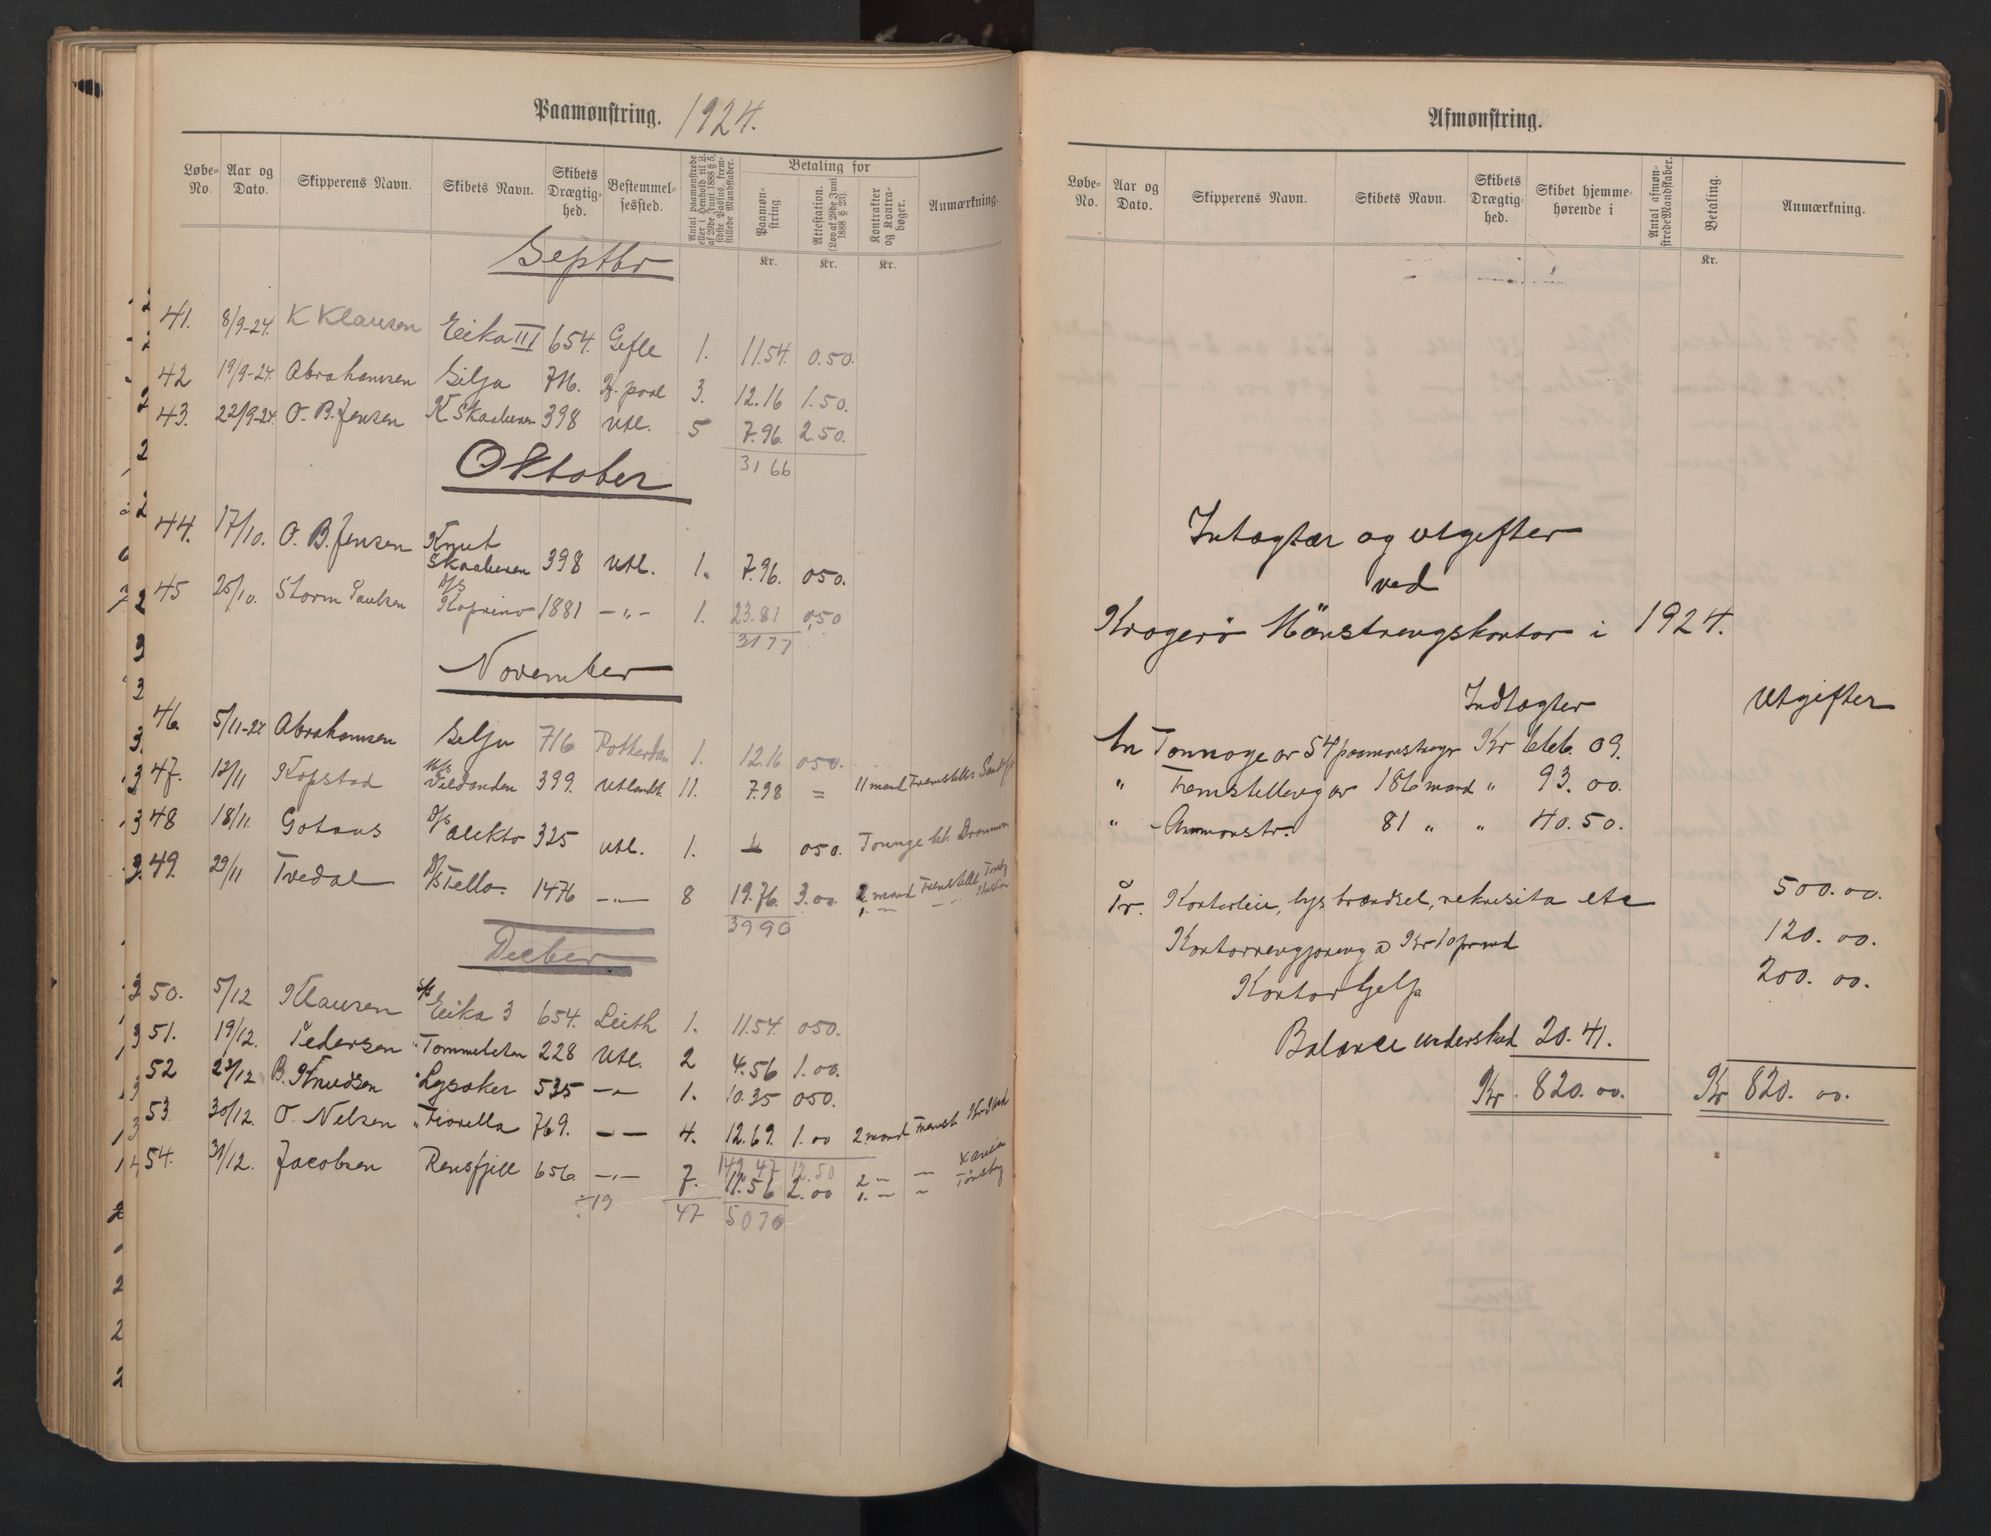 Paamønstring. 1924.
Løbe-No. Aar og Dato. Skipperens Navn. Skibets Navn. Skibets Drægtighed. Bestemmelsessted. Antal paamønstrede eller i Henhold til L. af 29de Juni 1888 § 5, sidste Passus, fremstillede Mandskaber. Betaling for Paamønstring. Attestation. (Lov af 29de Juni 1888 § 23). Kontrakter og Kontrabøger. Anmærkning.
Kr. Kr. Kr.
Septbr
41. 8/9-24. K Klausen Eika III 654. Gefle 1. 11.54. 0.50.
42 19/9-24. Abrahamsen Silja 716. pool 3. 12.16 1.50.
43. 22/9-24. O. B. Jensen K Skaaluren 398 Utl. 5 7.96. 2.50.
31 66
Oktober
44. 17/10. O. B. Jensen Knut Skaaluren 398 Utl. 1. 7.96. 050.
45 25/10. Storm Paulsen D/S Koprino 1881 -"- 1. 23.81 050
3177
November
46. 5/11-24 Abrahamsen Silja 716 Rotterdam 1. 12.16 050.
47. 12/11 Kopstad M/S Vildanden 399. Utlandt. 11. 7.98 = 11 mand Fremstilles
48 18/11. Gotaas D/S Alekto 325 Utl. 1. 050. Tonnage bet. Drammen
49. 29/11 Tvedal D/S Tello. 1476 -"- 8 19.76. 3.00. 2 mand Fremstillet
3990
Decber
50. 5/12 Klausen S/S Eika 3 654. Leith 1. 11.54. 050.
51. 19/12. Pedersen " Tommeliten 228 Utl. 2 4.56 1.00.
52 23/12 B. Knudsen " Lysaker 535 -"- 1. 10.35 050.
53. 30/12. O. Nelsen " Fiorella 769. -"- 4. 12.69. 1.00 2 mand Fremst.
149.47 12.50
54. 31/12. Jacobsen Rensfjell 656 -"- 7. 11.56 2.00 2 -"-
÷19 47 5070
Afmønstring.
Løbe-No. Aar og Dato. Skipperens Navn. Skibets Navn. Skibets Drægtighed. Skibet hjemmehørende i Antal afmønstrede Mandskaber. Betaling. Anmærkning.
Kr.
Intægter og utgifter
ved
Kragerö Mönstringskontor i 1924.
Indtægter Utgifter
An Tonnage av 54 paamönstringer Kr 666. 09.
" Fremstilling av 186 mand " 93. 00.
" Anmönstr. 81 " " 40. 50.
Pr. Kontorleie, lys brændsel, rekvisita etc 500. 00.
Kontorrengjöring a Kr 10 pr mnd 120. 00.
Kontorhjelp 200. 00.
Balance underskud 20. 41.
Kr. 820. 00. Kr 820. 00.